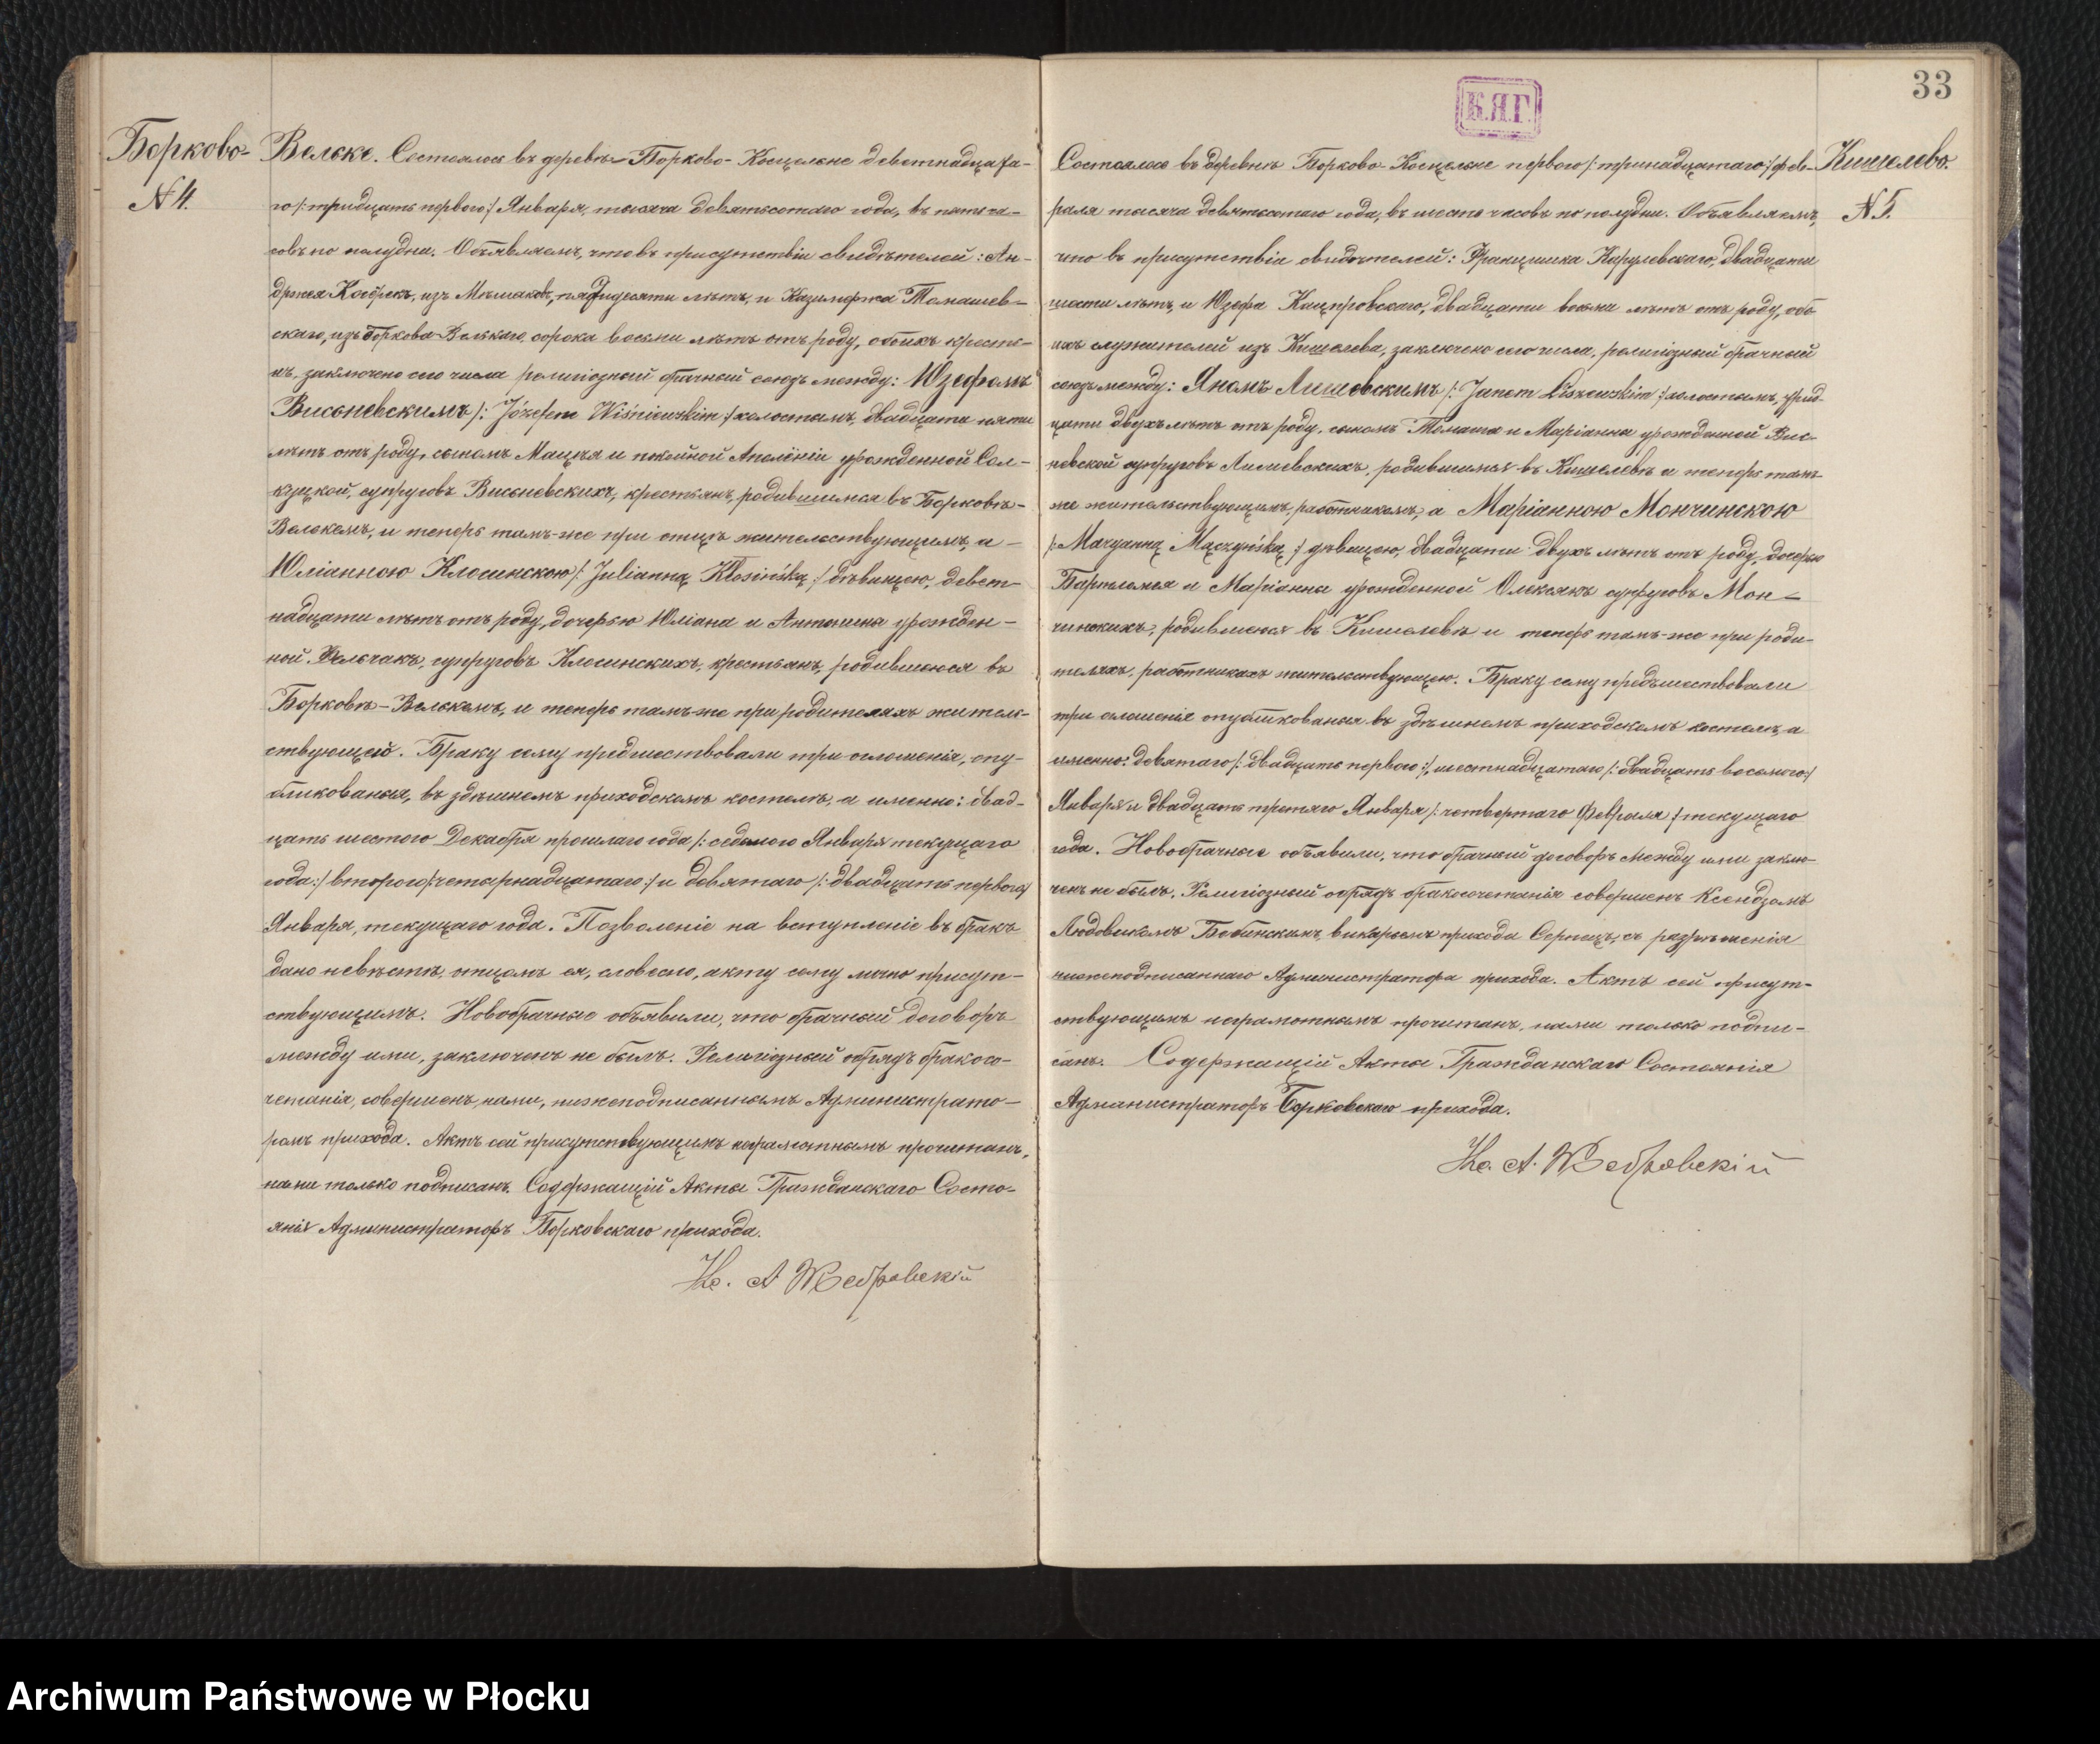 Борково-
№ 4.
Вельке. Состоялось въ деревнѣ Борково-Косцельне девятнадцата-
го /: тридцать перваго :/ Января, тысяча девятьсотаго года, въ пять ча-
совъ по полудни. Объявляемъ, что въ присутствіи свидѣтелей: Ан-
држея изъ пятидесяти лѣтъ, и Казимержа Томашев-
скаго, изъ Боркова-Велькаго, сорока восьми лѣтъ отъ роду, обоихъ крестья-
нъ, заключено сего числа религіозный брачный союзъ между: Юзефомъ
Висьневскимъ /: Józefem Wiśniewskim :/ холостымъ, двадцати пяти
лѣтъ отъ роду, сыномъ Мацѣя и покойной Аполёніи урожденной Сол-
куцкой, супруговъ Висьневскихъ, крестьянъ, родившимся въ Борковѣ-
Велькемъ, и теперь тамъ-же при отцѣ жительствующимъ, а
Юліанною Клосинскою /: Julianną Kłosińską :/ дѣвицею, девят-
надцати лѣтъ отъ роду, дочерью Юліана и Антонины урожден-
ной Вельчакъ, супруговъ Клосинскихъ, крестьянъ, родившеюся въ
Борковѣ-Велькемъ, и теперь тамъ-же при родителяхъ житель-
ствующей. Браку сему предшествовали три оглашенія, опу-
бликованыя, въ здѣшнемъ приходскомъ костелѣ, а именно: двад-
цать шестого Декабря прошлаго года /: седьмого Января текущаго
года :/ второго /: четырнадцатаго :/ и девятаго /: двадцать перваго :/
Января, текущаго года. Позволеніе на вступленіе въ бракъ
дано невѣстѣ, отцомъ ея, словесно, акту сему лично присут-
ствующимъ. Новобрачные объявили, что брачный договоръ
между ими, заключенъ не былъ. Религіозный обрядъ бракосо-
четанія, совершенъ, нами, нижеподписаннымъ Администрато-
ромъ прихода. Актъ сей присутствующимъ неграмотнымъ прочитанъ,
нами только подписанъ. Содержащій Акты Гражданскаго Состо-
янія Администраторъ Борковскаго прихода.
Кс. А Жебровскій
33
Б.Я.Г.
Кишелево.
№ 5.
Состоялось въ деревнѣ Борково-Косцельне перваго /: тринадцатаго :/ Фев-
раля тысяча девятьсотаго года, въ шесть часовъ по полудни. Объявляемъ,
что въ присутствіи свидѣтелей: Францишка Карулевскаго, двадцати
шести лѣтъ, и Юзефа Кацпровскаго, двадцати восьми лѣтъ отъ роду, обо-
ихъ служителей изъ Кишелева, заключено сего числа, религіозный брачный
союзъ между: Яномъ Лишевскимъ /: Janem Liszewskim :/ холостымъ, трид-
цати двухъ лѣтъ отъ роду, сыномъ Томаша и Маріанны урожденной Вис-
невской супруговъ Лишевскихъ, родившимся въ Кишелевѣ и теперь тамъ-
же жительствующимъ, работникомъ, а Маріанною Мончинскою
/: Maryanną Mączyńską :/ дѣвицею, двадцати двухъ лѣтъ отъ роду, дочерью
Бартломея и Маріанны урожденной Олексякъ супруговъ Мон-
чинскихъ, родившеюся въ Кишелевѣ и теперь тамъ-же при роди-
теляхъ, работникахъ жительствующею. Браку сему предшествовали
три оглашенія опубликованыя въ здѣшнемъ приходскомъ костелѣ, а
именно: девятаго /: двадцать перваго :/, шестнадцатаго /: двадцать восьмого :/
Января и двадцать третяго Января /: четвертаго Февраля :/ текущаго
года. Новобрачные объявили, что брачный договоръ между ими заклю-
ченъ не былъ. Религіозный обрядъ бракосочетанія совершенъ Ксендзомъ
Людовикомъ Бобинскимъ, викарьемъ прихода Серпецъ, съ разрѣшенія
нижеподписаннаго Администратора прихода. Актъ сей присут-
ствующимъ неграмотнымъ прочитанъ, нами только подпи-
санъ. Содержащій Акты Гражданскаго Состоянія
Администраторъ Борковскаго прихода.
Кс. А. Жебровскій
Archiwum Państwowe w Płocku